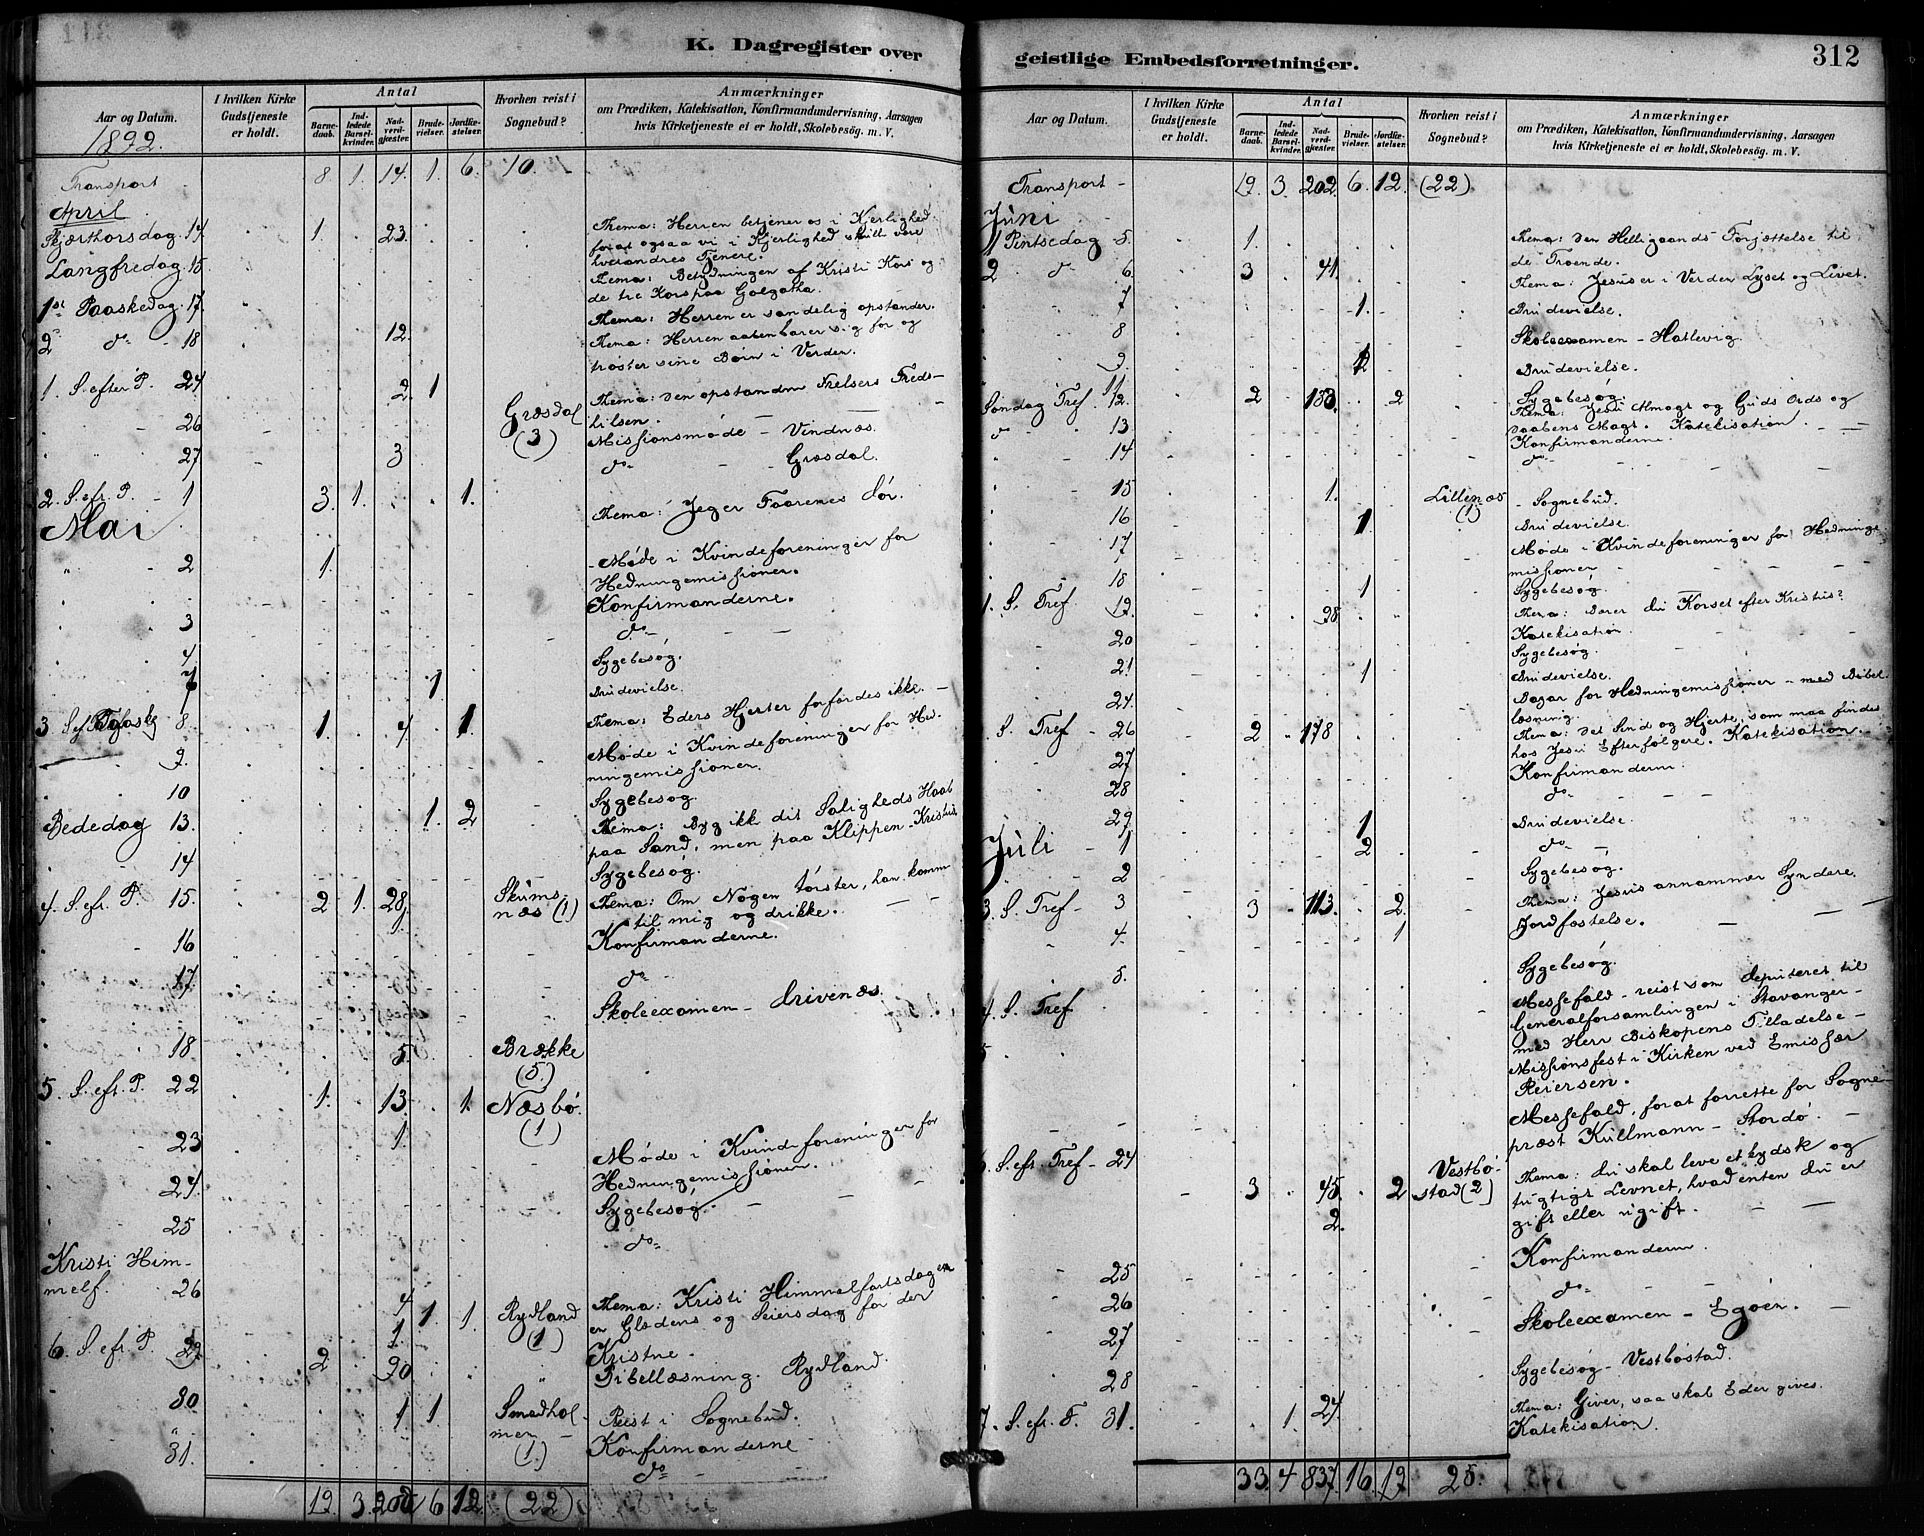 K. Dagregister over
Aar og Datum.
1892.
I hvilken Kirke Gudstjeneste er holdt.
Antal
Barnedaab.
Indledede Barselkvinder.
Nadverdgjæster.
Brudevielser.
Jordfæstelser.
Hvorhen reist i Sognebud?
Anmærkninger
om Prædiken, Katekisation, Konfirmandundervisning, Aarsagen
hvis Kirketjeneste ei er holdt, Skolebesøg. m. V.
Transport 8 1. 14. 1. 6. 10.
April
Skjærthorsdag. 14. 1. 23. Thema: Herren betjener os i Kjerlighed
forat ogsaa vi i Kjerlighed skulle være
hverandres Tjenere.
Langfredag. 15 Thema: Betydningen af Kristi Kors og
de tre Kors paa Golgatha.
1st Paaskedag. 17. Thema: Herren er sandelig opstanden.
2 do 18 12. Thema: Herren aabenbarer sig for og
trøster sine Børn i Verden.
1. S. efter P. 24 2. 1 Thema: Den opstandne Frelsers Freds-
hilsen.
26 Græsdal (3) Missionsmøde – Vindnæs.
27 3 do Græsdal.
2. S. eft. P. 1 3. 1. 1. Thema: Jeg er Faarenes Dør.
Mai
2 1. Møde i Kvindeforeninger for
Hedningemissionen.
Konfirmanderne.
3 do
4 Sygebesøg.
7 1 Brudevielse.
3 S. ef. Paaske 8. 1. 4. 1. Thema: Eders Hjerter forfærdes ikke.
9. Møde i Kvindeforeninger for Hed-
ningemissionen.
10 Sygebesøg
Bededag 13. 1. 2. Thema: Byg ikke dit Saligheds Haab
paa Sand, men paa Klippen – Kristus.
14 Sygebesøg.
4. S. eft. P. 15. 2. 1. 28. Skumsnæs (1) Thema: Om Nogen tørster, han komme
til mig og drikke.
1. Konfirmanderne.
16
17. do
Skoleexamen – Drivenæs.
18 5. Brække (5.)
5. S. eft. P. 22 1. 13. 1. Næsbø. (1)
23 1. Møde i Kvindeforeninger for
Hedningemissionen.
24. Sygebesøg.
25 do
Kristi Him-
melf. 26 4 1. 1. Rydland (1) Thema: Kristi Himmelfartsdag en
en Glædens og Seiersdag for den
Kristne.
1.
6. S. eft. P. 29 2 90 Bibellæsning. Rydland.
30 1. 1. Smedholmen (1.) Reist i Sognebud.
31. Konfirmanderne
do
19. 3. 202 6 12. (22)
geistlige Embedsforretninger.
312
Aar og Datum.
I hvilken Kirke Gudstjeneste er holdt.
Antal
Barnedaab.
Indledede Barselkvinder.
Nadverdgjæster.
Brudevielser.
Jordfæstelser.
Hvorhen reist i Sognebud?
Anmærkninger
om Prædiken, Katekisation, Konfirmandundervisning, Aarsagen
hvis Kirketjeneste ei er holdt, Skolebesøg. m. V.
Transport – 19. 3. 202. 6. 12. (22)
Juni
1 Pintsedag 5. 1. Thema: Den Helligaands Forjættelse til
de Troende.
2 do 6 3 41. Thema: Jesus er i Verden Lyset og Livet.
7 1. Brudevielse.
8 Skoleexamen – Hatlevig.
9. 2 Brudevielse.
11 Sygebesøg.
Søndag Tref. 12. 2 2 Thema: Jesu Almagt og Guds Ords og
Daabens Magt. Katekisation.
do 13 Konfirmanderne.
14 do
15 1. Lillenæs (1) Sognebud.
16 1 Brudevielse.
17 Møde i Kvindeforeninger for Hednings
missionen
18 1 Sygebesøg.
1. S. Tref. 19. 98. Thema: Bærer du Korset efter Kristus?
Katekisation.
20 Sygebesøg.
21 1 Brudevielse.
24. Bazar for Hedningemissionen – med Bibel-
læsning.
S. Tref – 26 2 178 Thema: Det Sind og Hjerte, som maa findes
hos Jesu Efterfølgere. Katekisation.
27 Konfirmanderne.
28 do
29 1 Brudevielse.
Juli 1 2 do
2 Sygebesøg.
3. S. Tref – 3 3 113. 2. Thema: Jesus annammer Syndere.
4. 1 Jordfæstelse.
5. Sygebesøg.
4. S. Tref Messefald – reist som deputeret til
Generalforsamlingen i Stavanger –
med Herr Biskopens Tilladelse –
5 Missionsfest i Kirken ved Emissær
Reiersen.
Messefald, for at forrette for Sogne-
præst Kullmann – Stordø.
6. S. eft. Tref – 24 3 45. 2 Vestbøstad (2) Thema: Du skal leve et kydsk og
tugtigt Levnet, hvad enten du er
gift eller ugift.
2.
25 Konfirmanderne.
26 do
27 Skoleexamen – Egøen.
28 Sygebesøg – Vestbøstad.
7. S. eft. T. 31. 1. 24. Thema: Giver, saa skal Eder gives.
Katekisation.
33 4 837. 16. 19. 25.